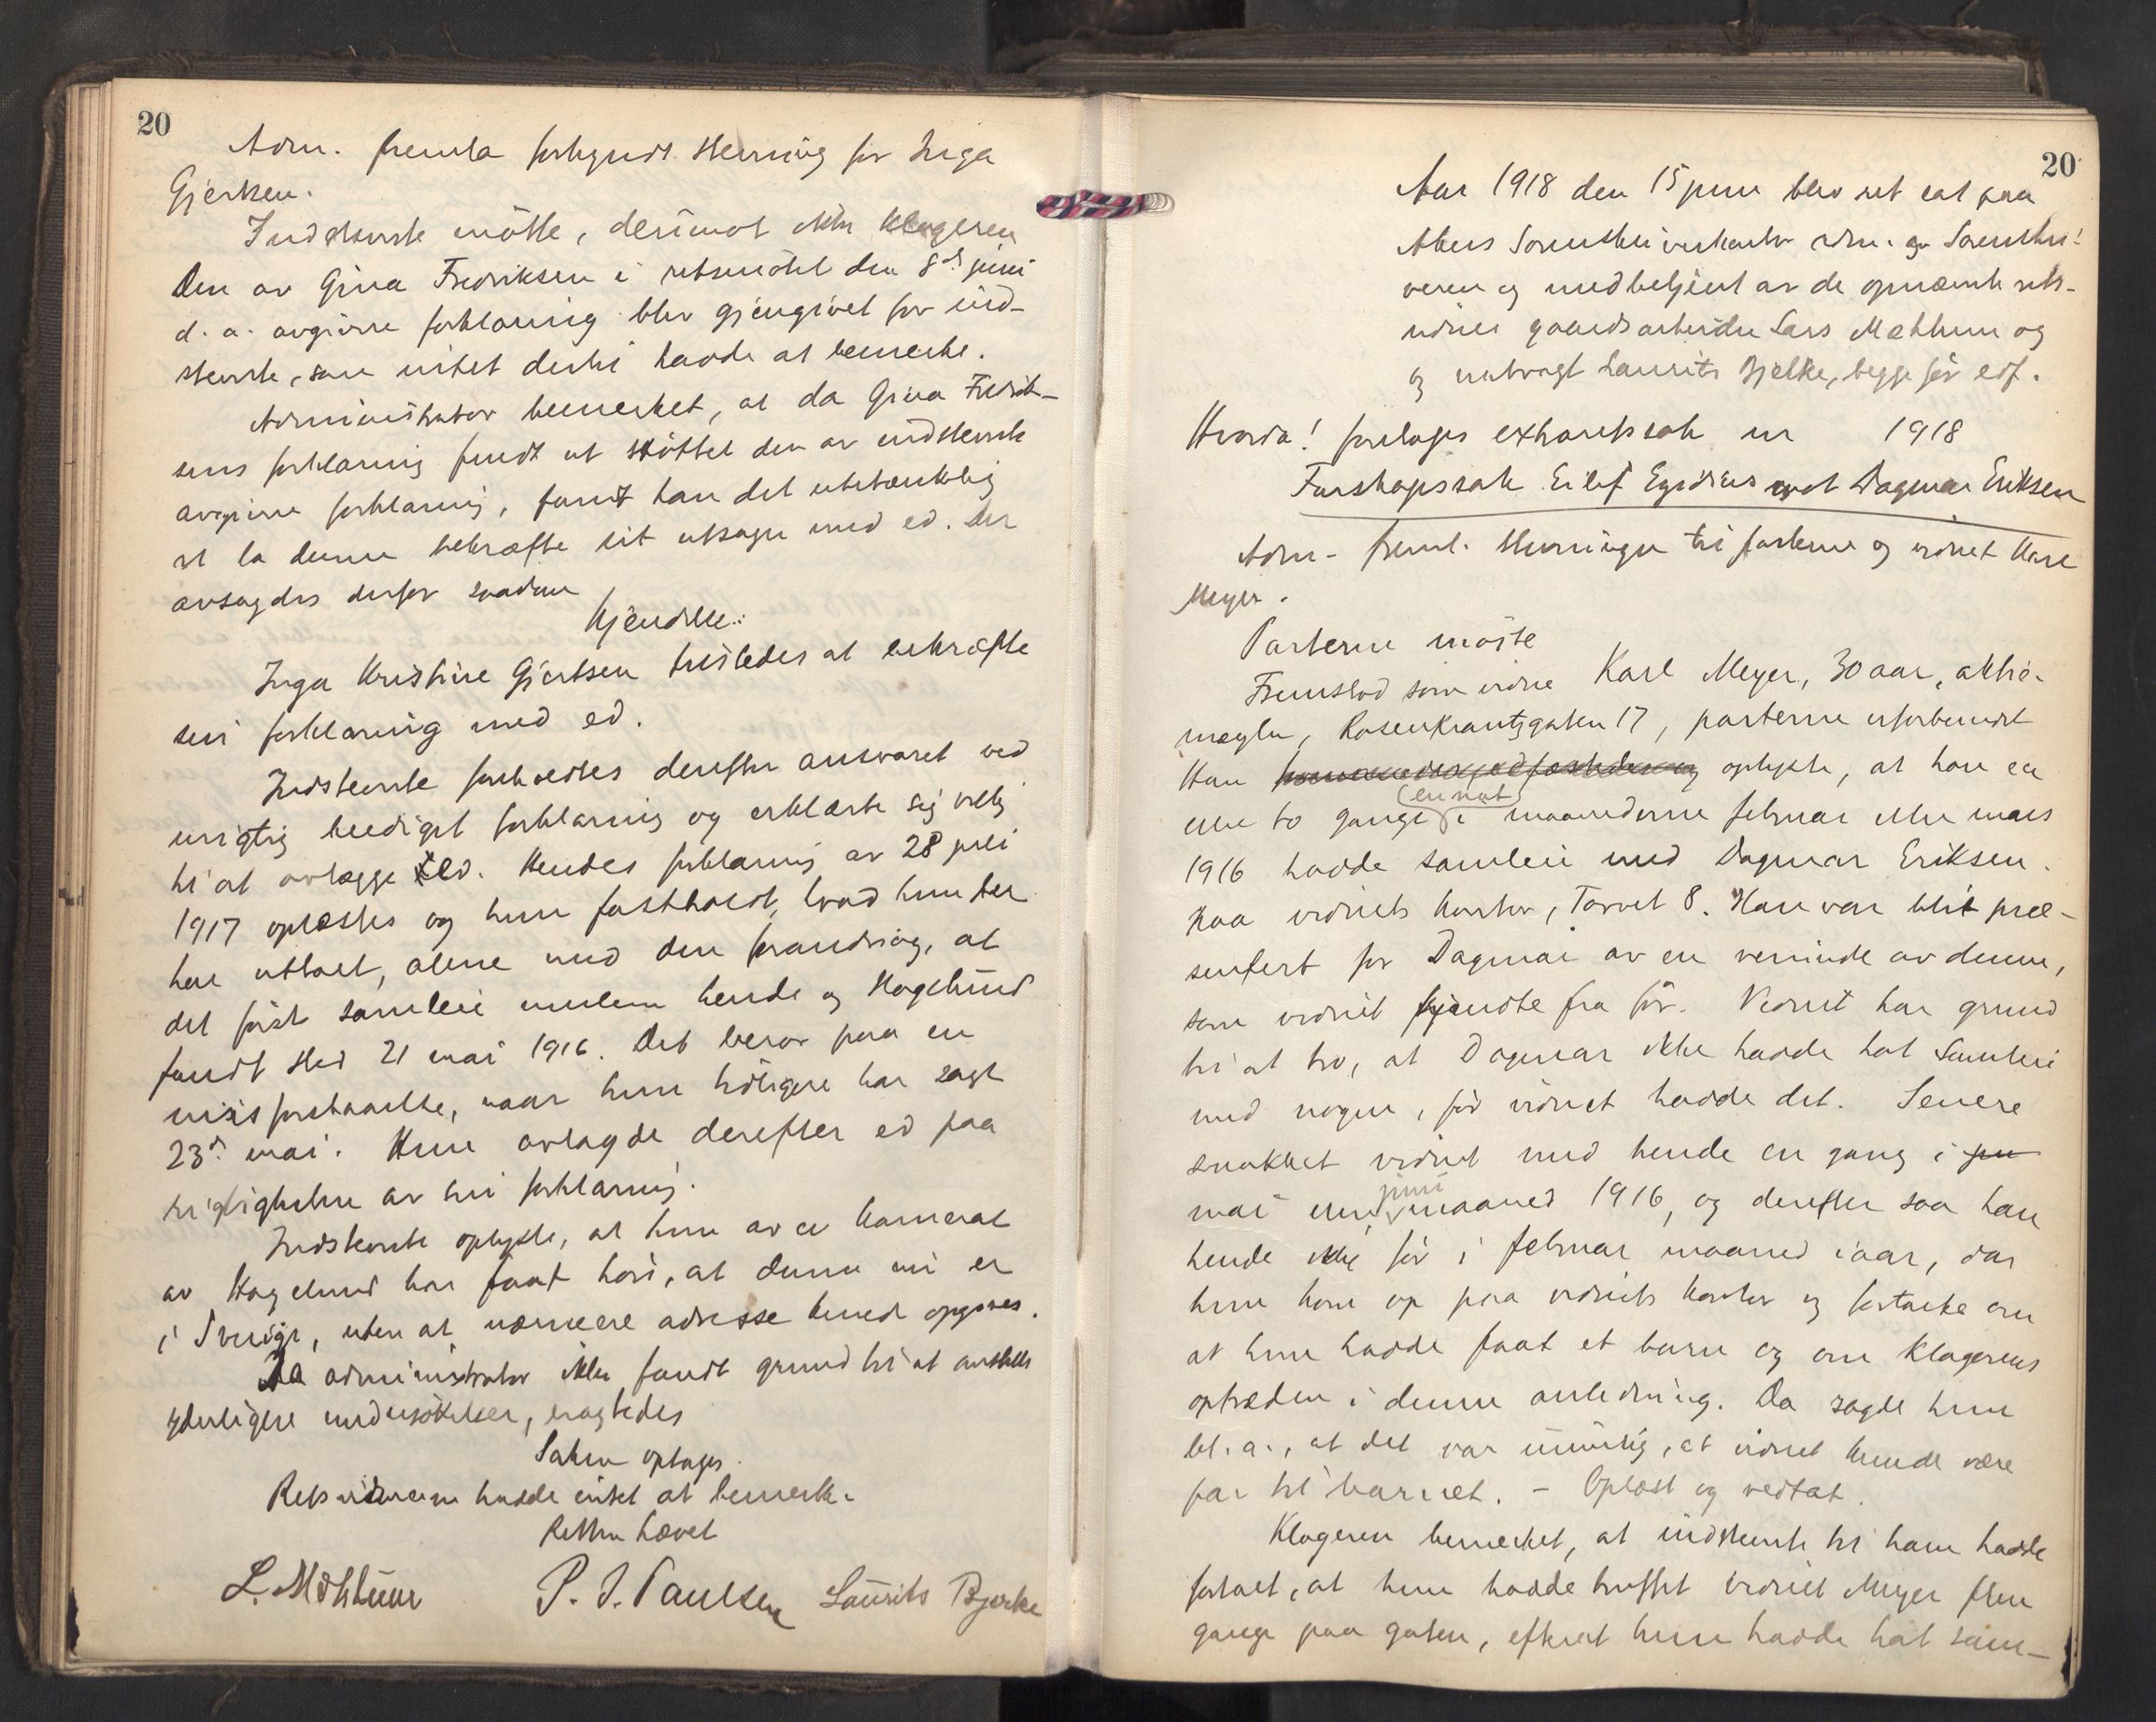 20
Adm. fremla forkyndt stevning for Inga
Gjertsen.
Indstevnte møtte, derimot ikke klageren
Den av Gina Fredriksen i retsmøtet den 8de juni
d. a. avgivne forklaring blev gjengivet for ind-
stevnte, som intet dertil hadde at bemerke.
Administrator bemerket, at da Gina Fredrik-
sens forklaring fuldt ut støttet den av indstevnte
avgivne forklaring, fandt han det ubetænkelig
at la denne bekræfte sit utsagn med ed. Der
avsagdes derfor saadan
Kjendelse:
Inga Kristine Gjertsen tilstedes at bekræfte
sin forklaring med ed.
Indstevnte foreholdtes derefter ansvaret ved
urigtig beediget forklaring og erklærte sig villig
til at avlægge ed. Hendes forklaring av 28 juli
1917 oplæstes og hun fastholdt, hvad hun her
har uttalt, alene med den forandring, at
det første samleie mellem hende og Hagelund
fandt sted 21 mai 1916. Det beror paa en
misforstaaelse, naar hun tidligere har sagt
23de mai. Hun avlagde derefter ed paa
rigtigheten av sin forklaring.
Indstevnte oplyste, at hun av en kamerat
av Hagelund har faat høre, at denne nu er
i Sverige, uten at nærmere adresse kunde opgives.
Da administrator ikke fandt grund til at anstille
yderligere undersøkelser, eragtedes
Saken optages.
Retsvidnerne hadde intet at bemerke.
Retten hævet
L. Mæhlum P. I. Paulsen Laurits Bjerke
20
Aar 1918 den 15 juni blev ret sat paa
Akers Sorenskriverkontor adm. av Sorenskri-
veren og medbetjent av de opnævnte rets-
vidner gaardsarbeider Lars Mæhlum og
og natvagt Laurits Bjelke, begge før edf.
Hvorda! foretages extraretssak nr 1918
Farskapssak Eilif Egidius mot Dagmar Eriksen
Adm. freml. stevninger til parterne og vidnet Karl
Meyer.
Parterne møtte
Fremstod som vidne Karl Meyer, 30 aar, aktie-
mægler, Rosenkrantzgaten 17, parterne uforbundet
Han oplyste, at han en
eller to gange (en nat) i maanederne februar eller mars
1916 hadde samleie med Dagmar Eriksen.
paa vidnets kontor, Torvet 8. Han var blit præ-
sentert for Dagmar av en veninde av denne,
som vidnet kjendte fra før. Vidnet har grund
til at tro, at Dagmar ikke hadde hat samleie
med nogen, før vidnet hadde det. Senere
snakket vidnet med hende en gang i jun
mai eller juni maaned 1916, og derefter saa han
hende ikke før i februar maaned iaar, da
hun kom op paa vidnets kontor og fortalte om
at hun hadde faat et barn og om klagerens
optræden i denne anledning. Da sagde hun
bl. a., at det var umulig, at vidnet kunde være
far til barnet. – Oplæst og vedtat.
Klageren bemerket, at indstevnte til ham hadde
fortalt, at hun hadde truffet vidnet Meyer flere
gange paa gaten, efterat hun hadde hat sam-